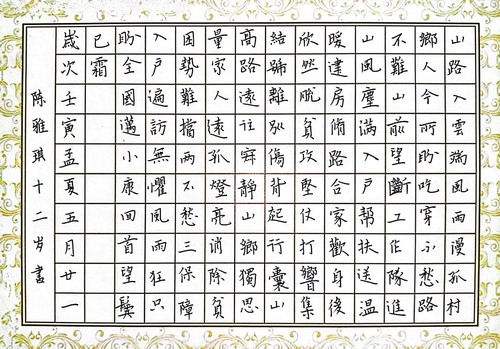 山路入雲端風雨漫孤村
鄉人今所盼吃穿不愁路
不難山前望斷工作隊進
山風塵滿入戶幫扶送溫
暖建房脩路合家歡身後
欣然脫貧攻堅仗打響集
結歸離別傷背起行囊山
高路遠往寐靜山鄉獨思
量家人遠孤燈亮消除貧
困勢難擋兩不愁三保障
入戶遍訪無懼風雨狂只
盼全國邁小康回首望鬢
已霜
歲次壬寅孟夏五月廿一
陈雅琪十二岁書